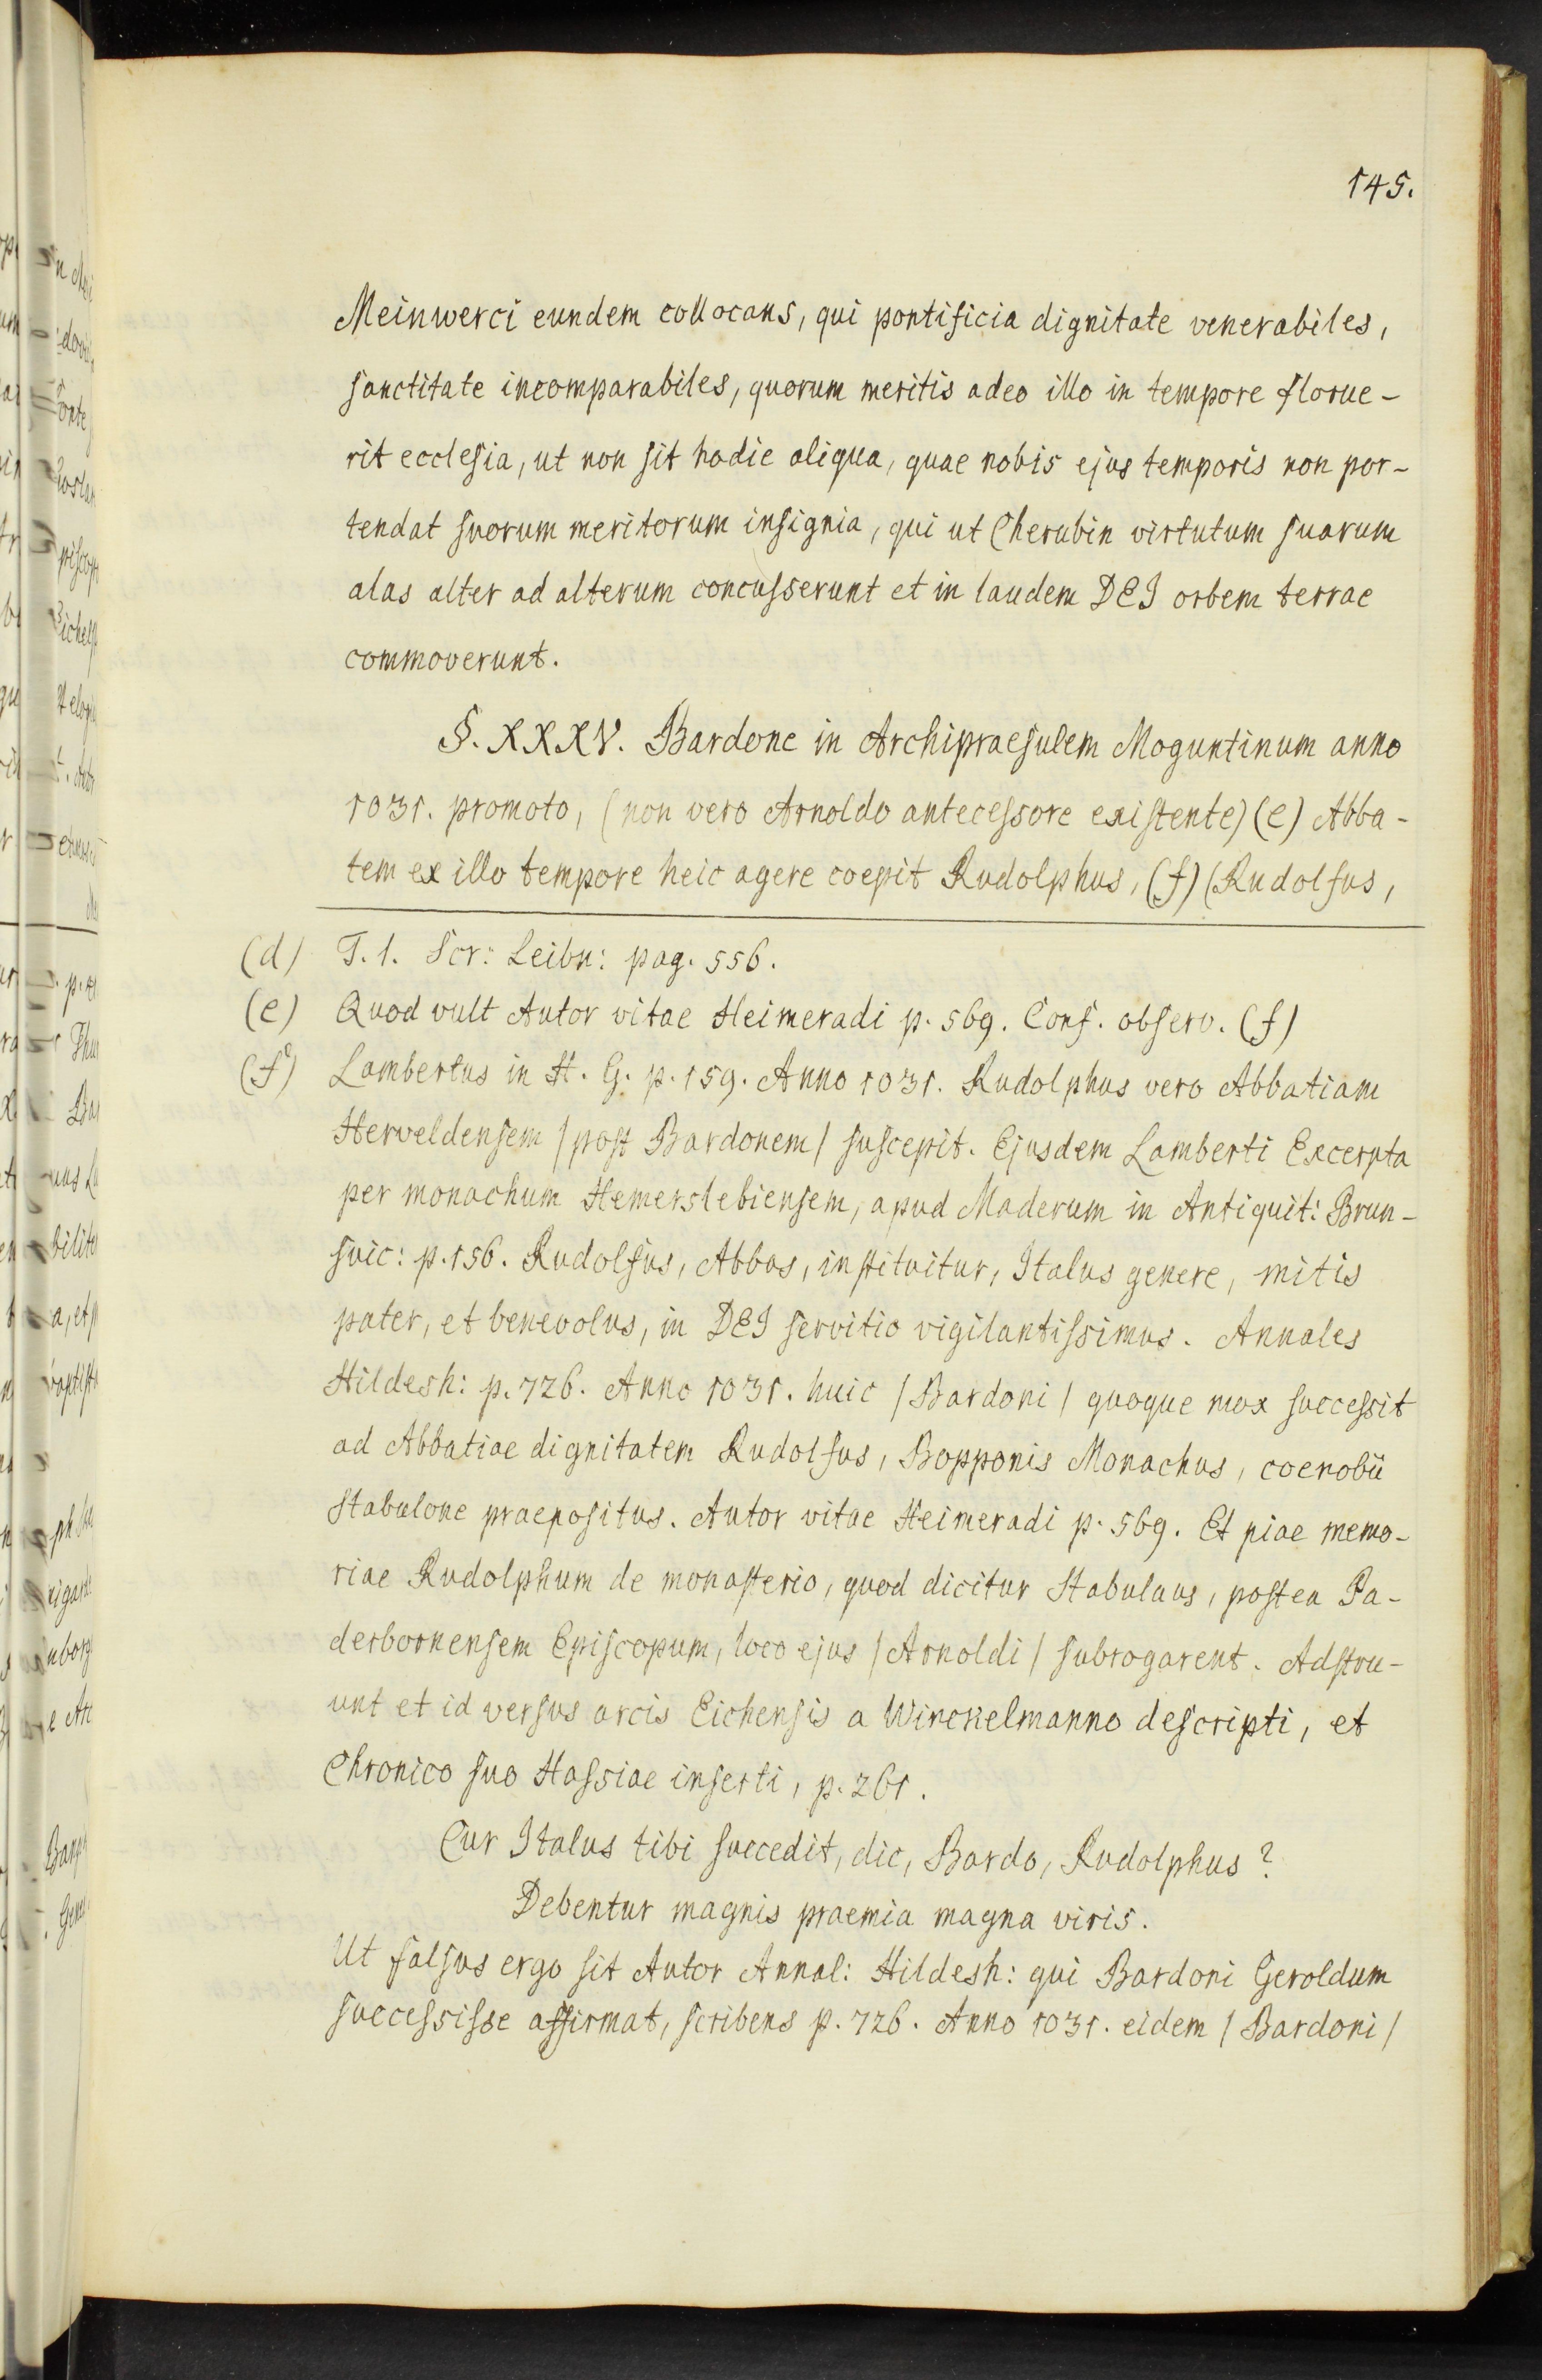 145.
Meinwerci eundem collocans, qui pontificia dignitate venerabiles,
sanctitate incomparabiles, quorum meritis adeo illo in tempore florue-
rit ecclesia, ut non sit hodie aliqua, quae nobis ejus temporis non por-
tendat suorum meritorum insignia, qui ut Cherubin virtutum suarum
alas alter ad alterum concusserunt et in laudem DEI orbem terrae
commoverunt.
§. XXXV. Bardone in Archipraesulem Moguntinum anno
1031. promoto, (non vero Arnoldo antecessore existente) (e) Abba-
tem ex illo tempore heic agere coepit Rudolphus, (f) (Rudolfus,
(d) T. 1. Scr: Leibn: pag. 556.
(e) Quod vult Autor vitae Heimeradi p. 569. Conf. observ. (f)
(f) Lambertus in H. G. p. 159. Anno 1031. Rudolphus vero Abbatiam
Herveldensem / post Bardonem / suscepit. Ejusdem Lamberti Excerpta
per monachum Hemerslebiensem, apud Maderum in Antiquit: Brun-
suic: p. 156. Rudolfus, Abbas, instituitur, Italus genere, mitis
pater, et benevolus, in DEI servitio vigilantissimus. Annales
Hildesh: p. 726. Anno 1031. huic / Bardoni / quoque mox successit
ad Abbatiae dignitatem Rudolfus, Bopponis Monachus, coenobii
Stabulone praepositus. Autor vitae Heimeradi p. 569. Et piae memo-
riae Rudolphum de monasterio, quod dicitur Stabulaus, postea Pa-
derbornensem Episcopum, loco ejus / Arnoldi / subrogarent. Adstru-
unt et id versus arcis Eichensis a Winckelmanno descripti, et
Chronico suo Hassiae inserti, p. 261.
Cur Italus tibi succedit, dic, Bardo, Rudolphus?
Debentur magnis praemia magna viris.
Ut falsus ergo sit Autor Annal: Hildesh: qui Bardoni Geroldum
successisse affirmat, scribens p. 726. Anno 1031. eidem / Bardoni /